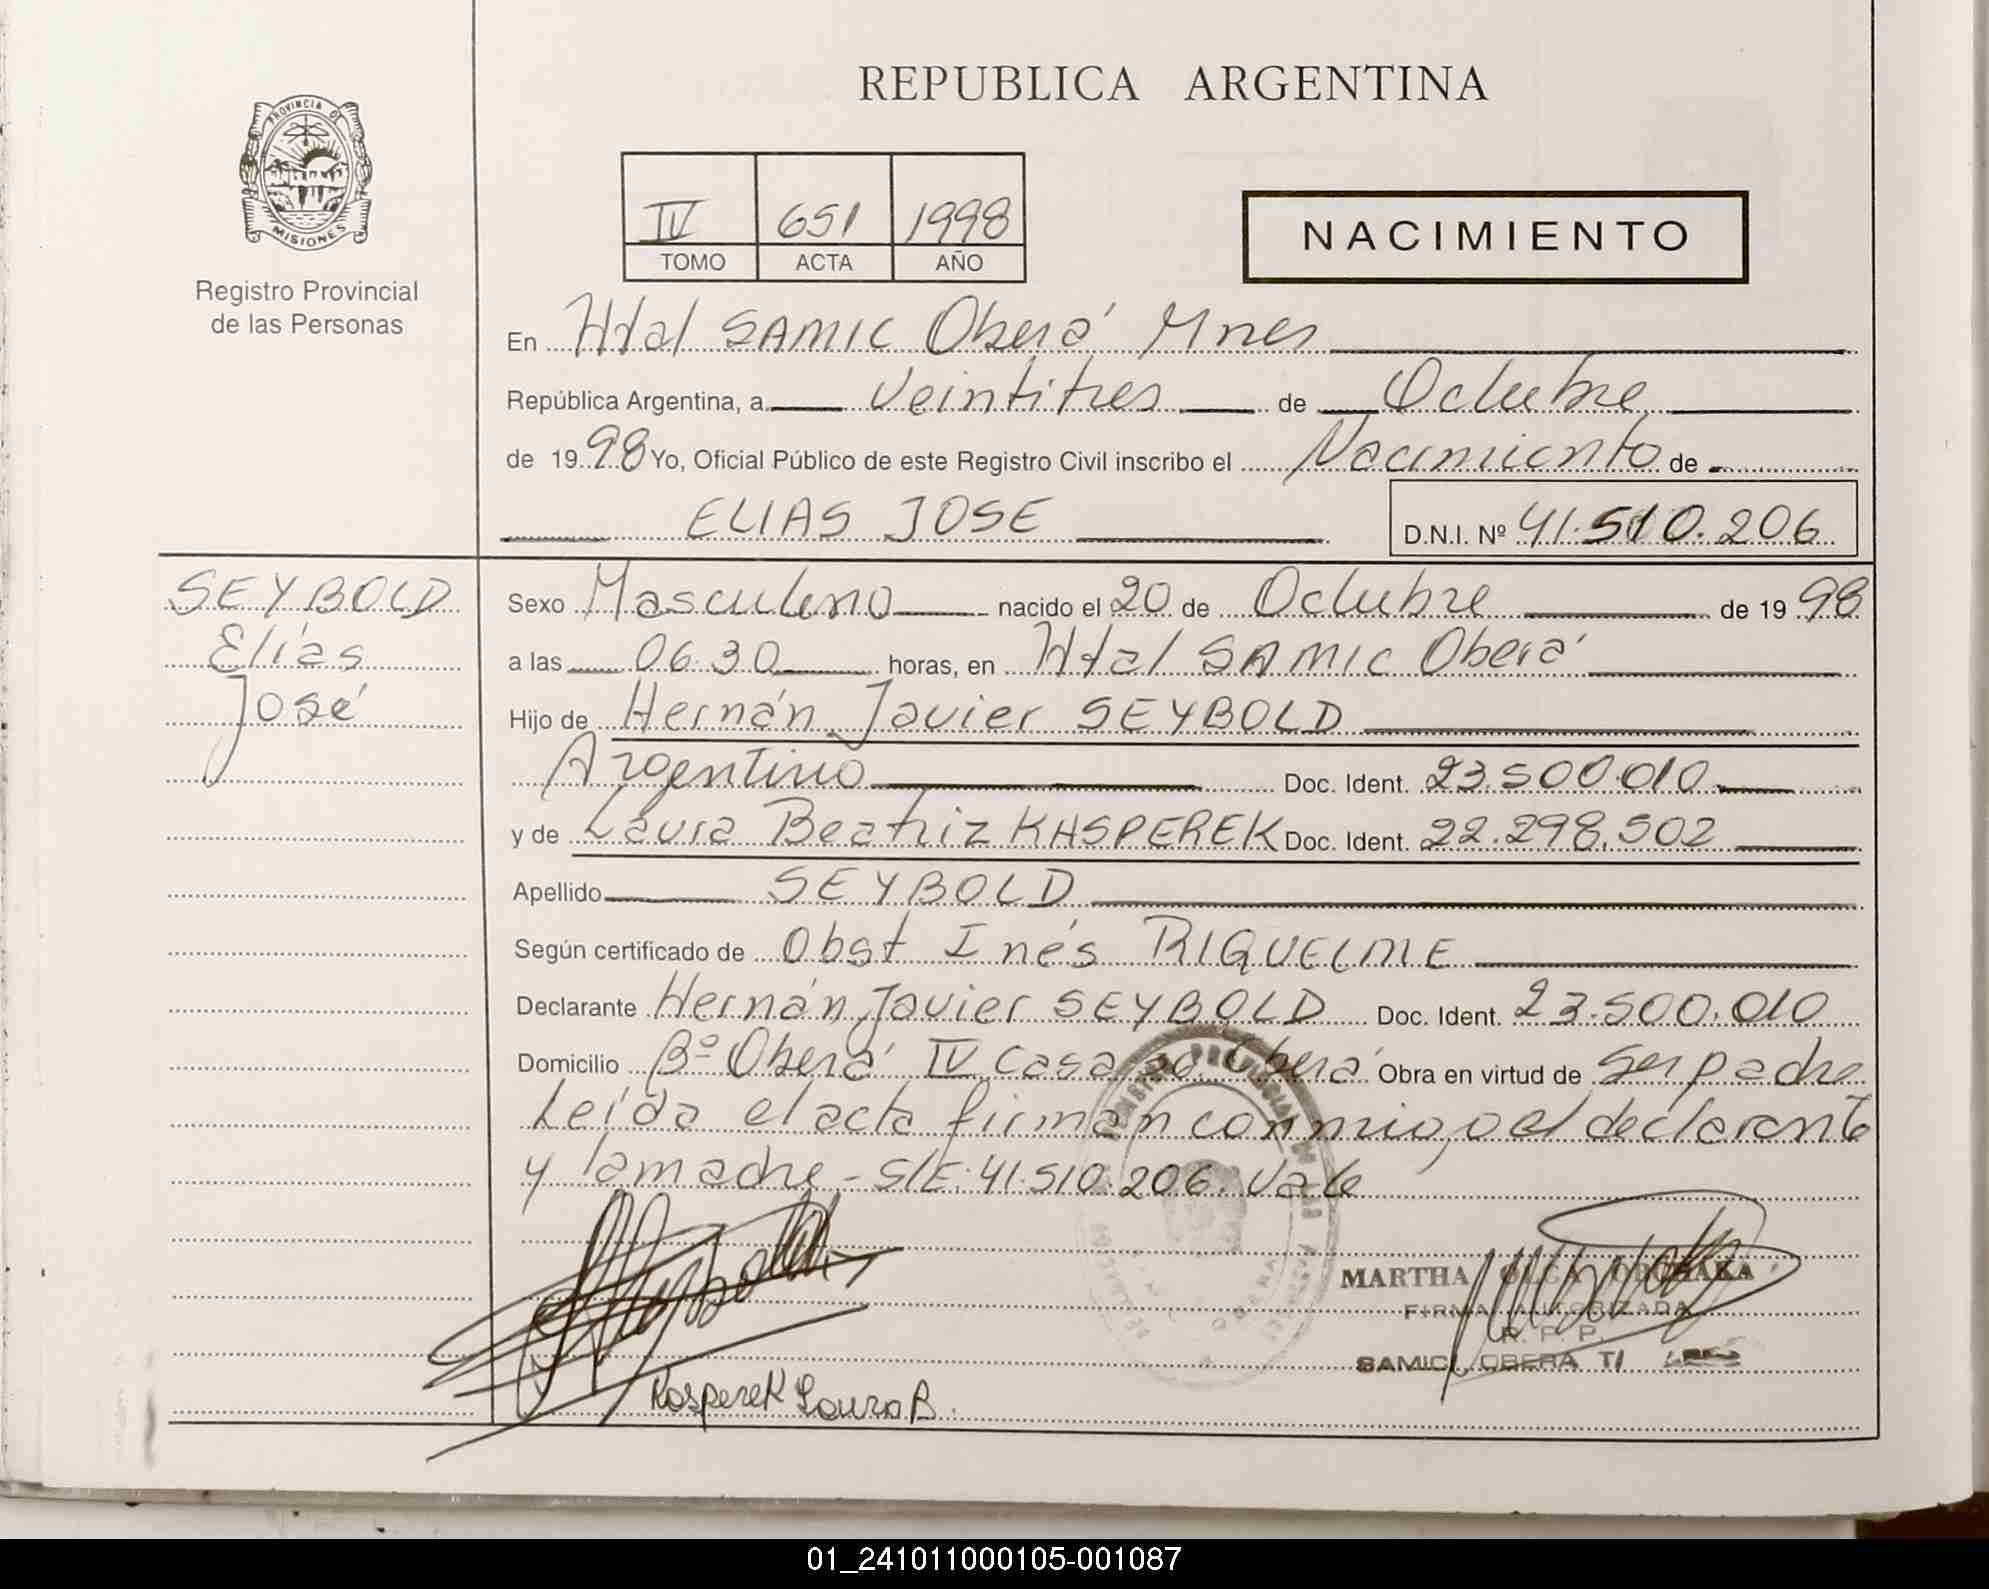 REPUBLICA ARGENTINA
PROVINCIA DE
MISIONES
Registro Provincial
de las Personas
IV 651 1998
TOMO ACTA AÑO
NACIMIENTO
En Htal SAMIC Oberá Mnes
República Argentina, a Veintitres de Octubre
de 1998 Yo, Oficial Público de este Registro Civil inscribo el Nacimiento de
ELIAS JOSE D.N.I. Nº 41.510.206
SEYBOLD
Elías
José
Sexo Masculino nacido el 20 de Octubre de 1998
a las 06.30 horas, en Htal SAMIC Oberá
Hijo de Hernán Javier SEYBOLD
Argentino Doc. Ident. 23.500.010
y de Laura Beatriz KASPEREK Doc. Ident. 22.298.502
Apellido SEYBOLD
Según certificado de Obst Inés RIQUELME
Declarante Hernán Javier SEYBOLD Doc. Ident. 23.500.010
Domicilio Bº Oberá IV Casa Oberá Obra en virtud de ser padre
Leída el acta firman conmigo el declarante
y la madre - S/E: 41.510.206. Vale
MARTHA OLGA
FIRMA AUTORIZADA
R. P. P.
SAMIC OBERA TI
Kasperek Laura B.
01_241011000105-001087